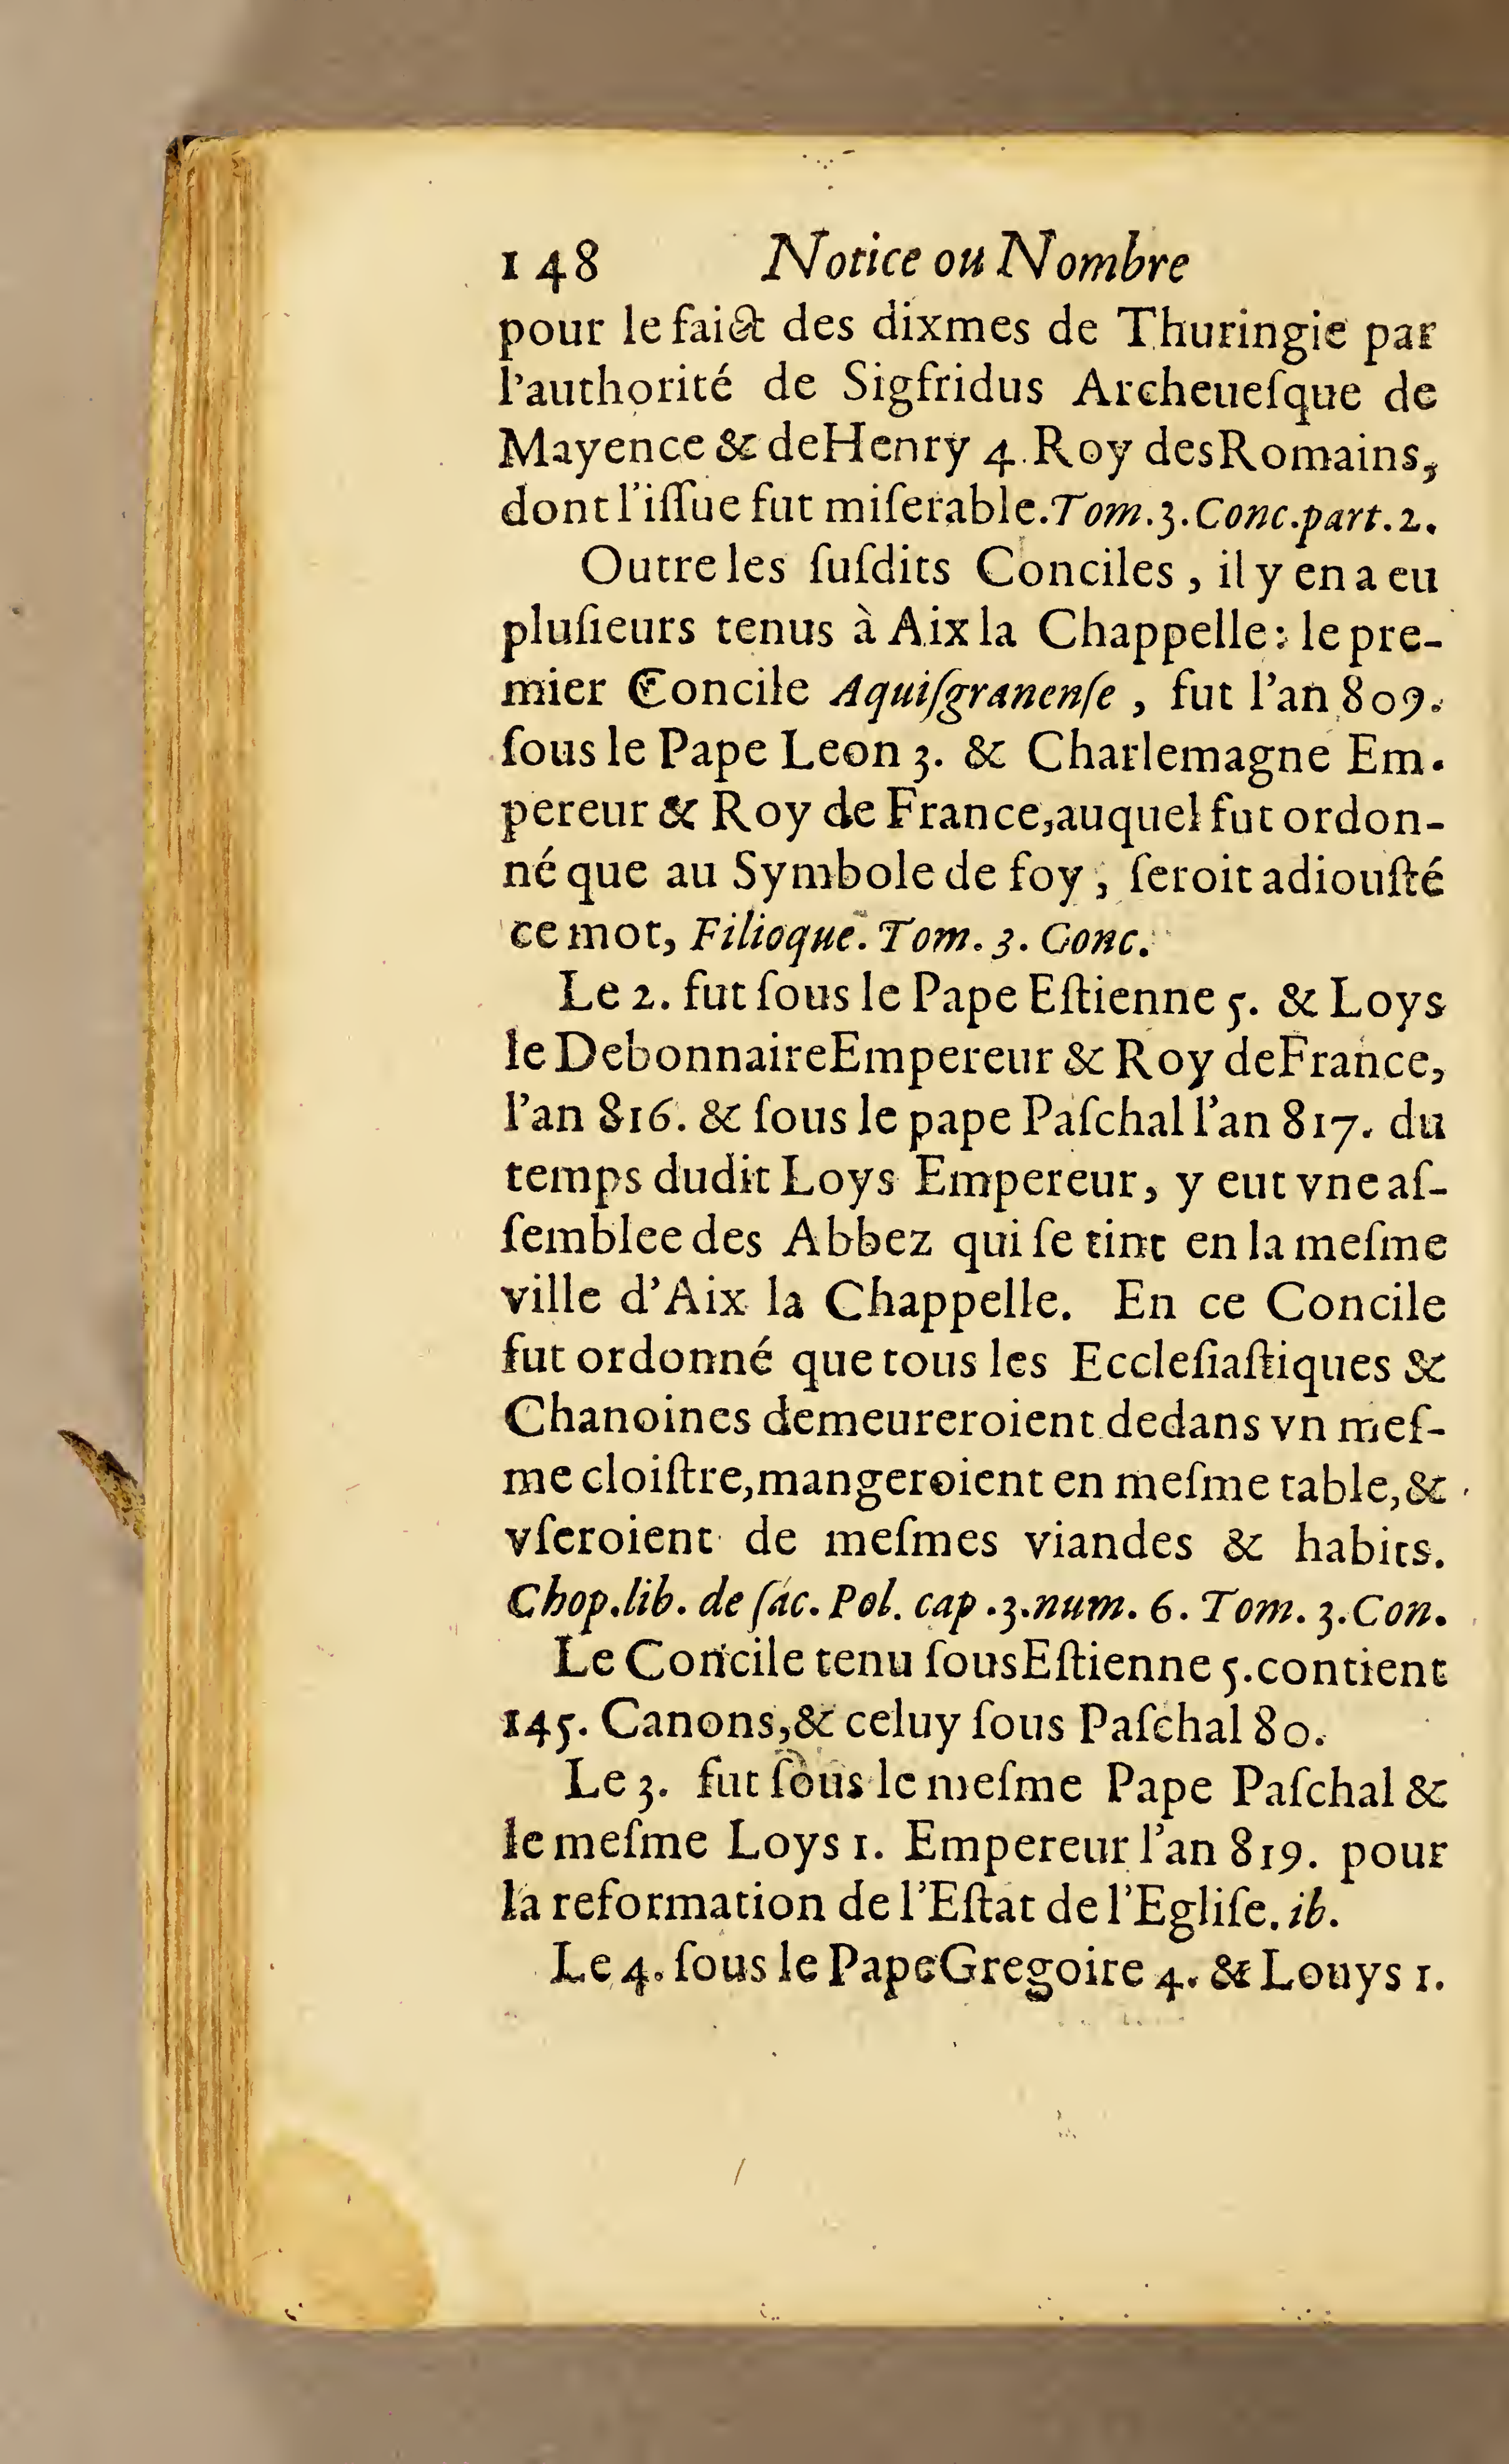 148 Notice ou Nombre
pour le faict des dixmes de Thuringie par
l'authorité de Sigfridus Archeueſque de
Mayence & de Henry 4. Roy des Romains,
dont l'iſſue fut miſerable. Tom. 3. Conc. part. 2.
Outre les ſuſdits Conciles, il y en a eu
pluſieurs tenus à Aix la Chappelle: le pre-
mier Concile Aquiſgranenſe, fut l'an 809.
ſous le Pape Leon 3. & Charlemagne Em-
pereur & Roy de France, auquel fut ordon-
né que au Symbole de foy, ſeroit adiouſté
ce mot, Filioque. Tom. 3. Conc.
Le 2. fut ſous le Pape Eſtienne 5. & Loys
le Debonnaire Empereur & Roy de France,
l'an 816. & ſous le pape Paſchal l'an 817. du
temps dudit Loys Empereur, y eut vne aſ-
ſemblee des Abbez qui ſe tint en la meſme
ville d'Aix la Chappelle. En ce Concile
fut ordonné que tous les Eccleſiaſtiques &
Chanoines demeureroient dedans vn meſ-
me cloiſtre, mangeroient en meſme table, &
vſeroient de meſmes viandes & habits.
Chop. lib. de ſac. Pol. cap. 3. num. 6. Tom. 3. Con.
Le Concile tenu ſous Eſtienne 5. contient
145. Canons, & celuy ſous Paſchal 80.
Le 3. fut ſous le meſme Pape Paſchal &
le meſme Loys 1. Empereur l'an 819. pour
la reformation de l'Eſtat de l'Egliſe. ib.
Le 4. ſous le Pape Gregoire 4. & Louys 1.